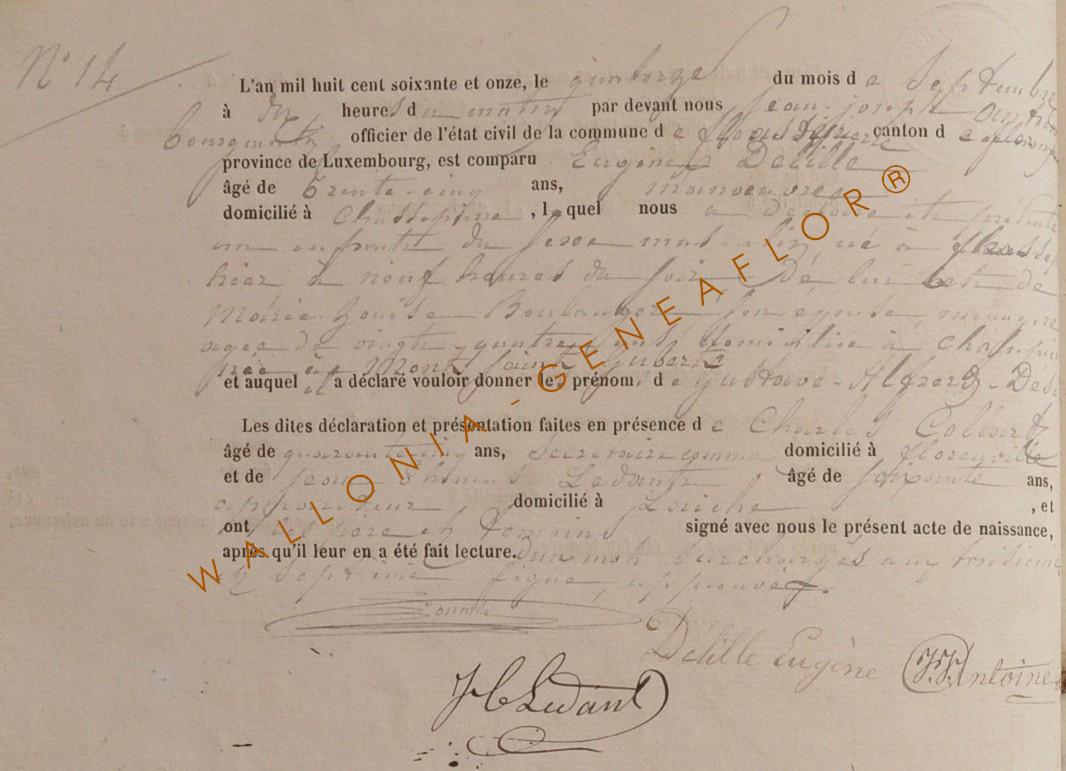 N° 14
L'an mil huit cent soixante et onze, le quatorze du mois de Septembre
à dix heures du matin par devant nous Jean-Joseph Antoine
bourgmestre officier de l'état civil de la commune de canton de
province de Luxembourg, est comparu Eugène Delille
âgé de trente-cinq ans, manoeuvre
domicilié à , lequel nous a déclaré et présenté
un enfant du sexe masculin né à
hier à neuf heures du soir De lui et de
Marie Louise Boulanger son épouse, ménagère
agée de vingt-quatre ans domiciliée à
née à Mont Saint Guibert
et auquel il a déclaré vouloir donner les prénoms de Gustave-Alfred-Dési
Les dites déclaration et présentation faites en présence de Charles Collard
âgé de quarante cinq ans, Secrétaire communal domicilié à Florenville
et de Jean Ledant, âgé de soixante ans,
domicilié à , et
ont les père et témoins signé avec nous le présent acte de naissance,
après qu'il leur en a été fait lecture. d'un mot surchargés aux
septième ligne, approuvé.
Delille Eugène J.J. Antoine
Ledant
WALLONIA - GENEAFLOR ®